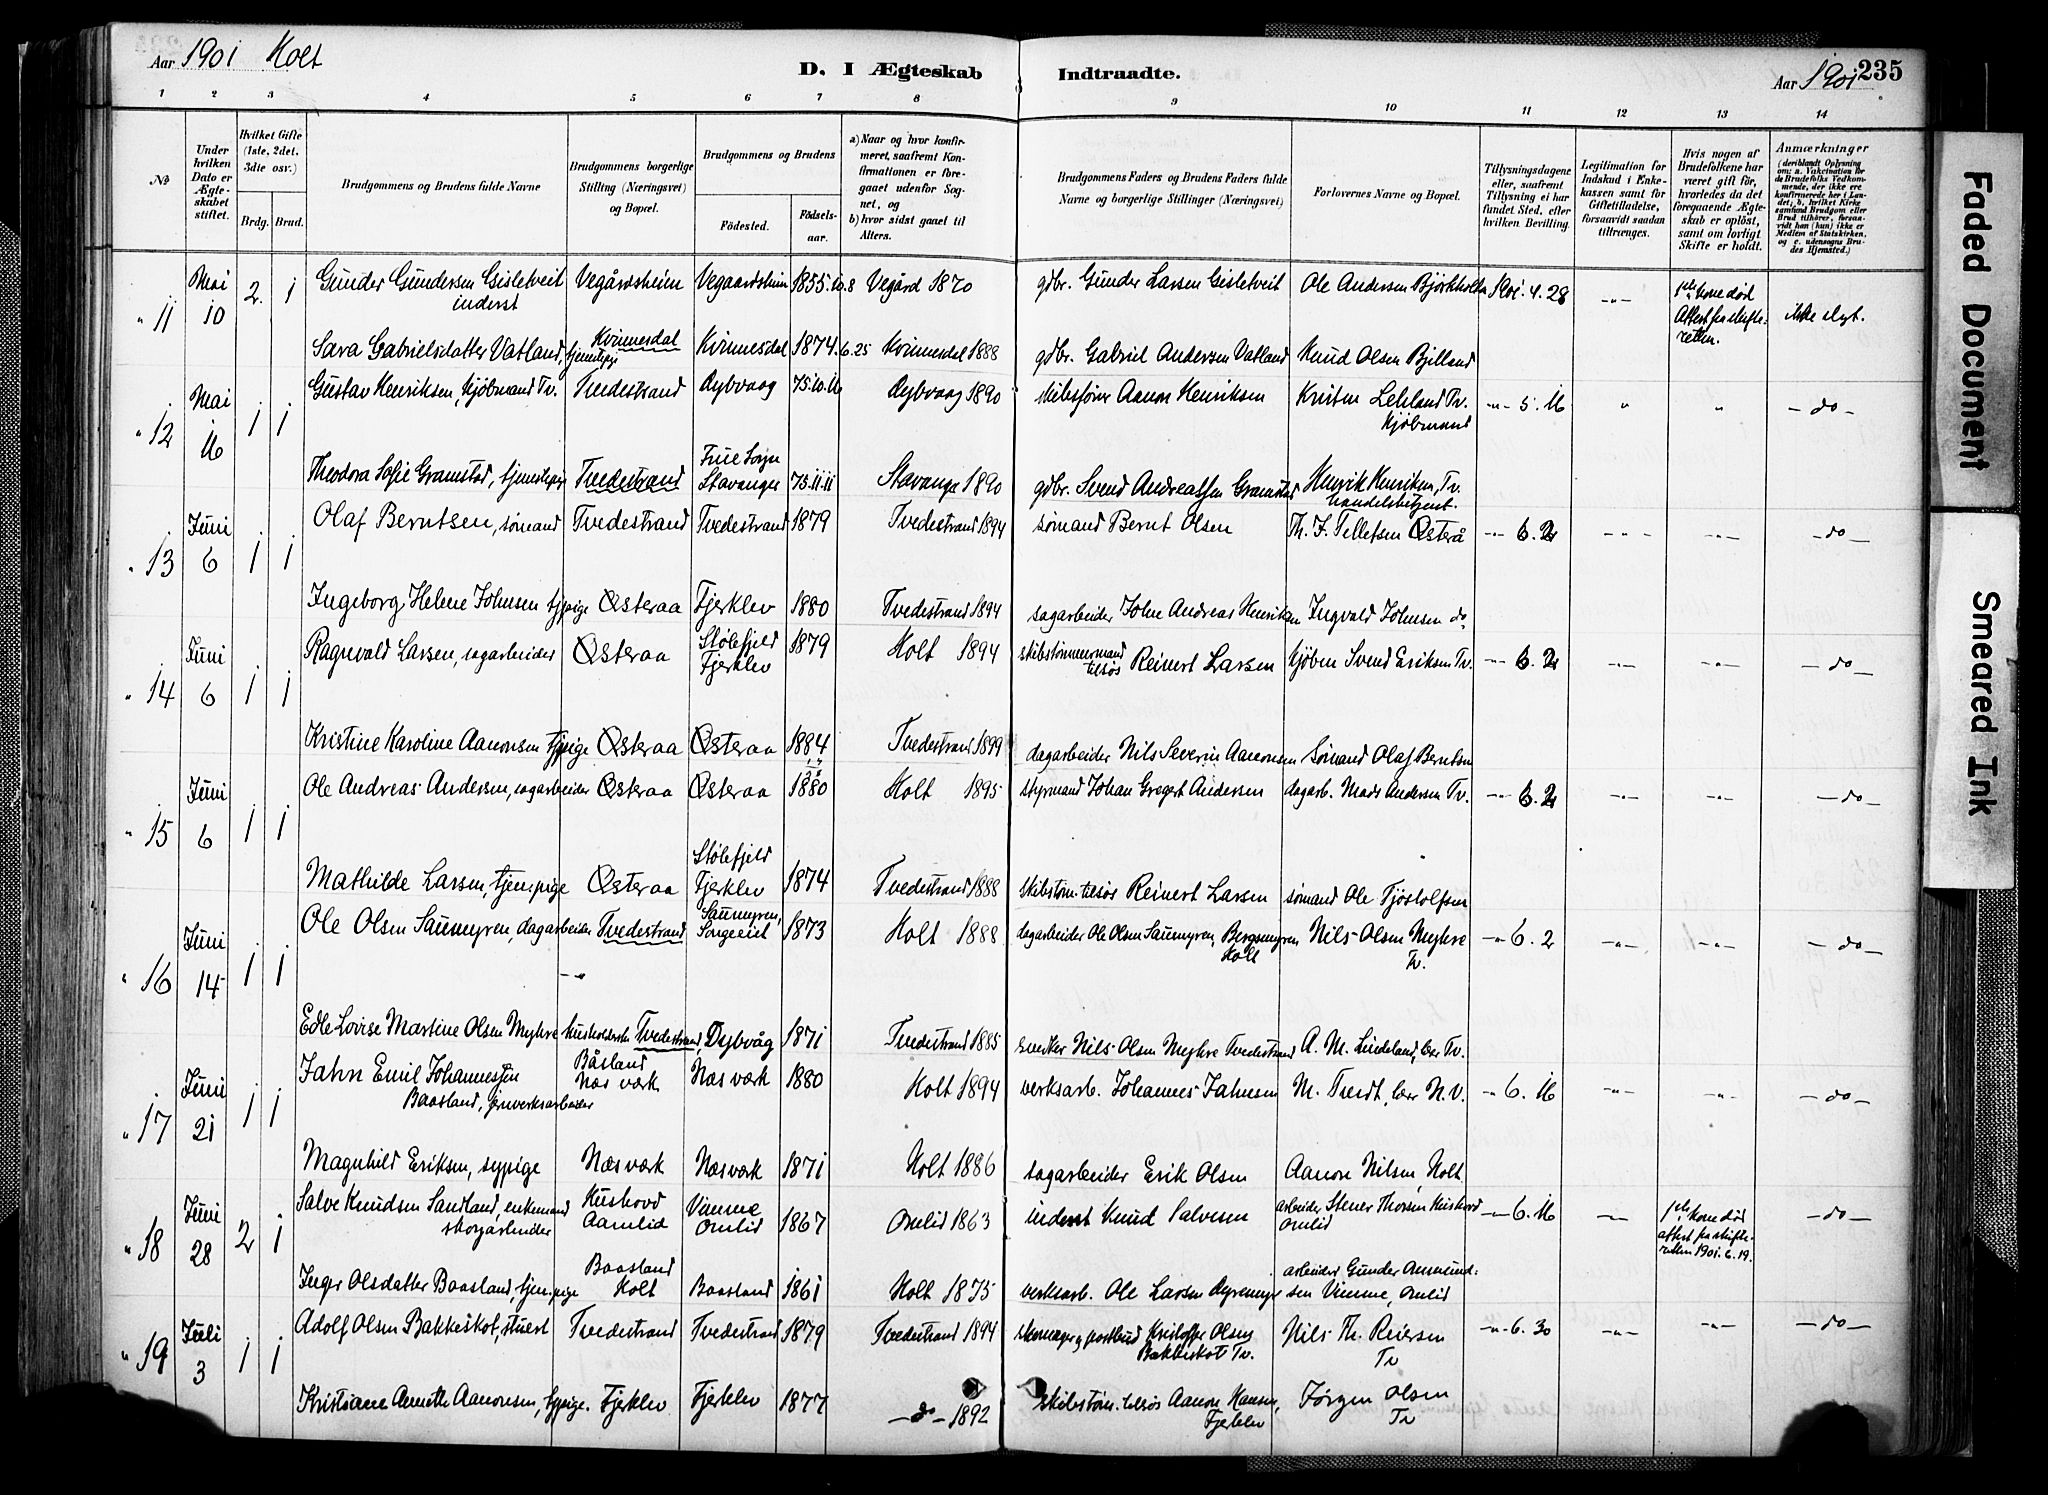 Aar 1901 Holt
D. I Ægteskab Indtraadte.
Aar 1901 235
1 2 3 4 5 6 7 8 9 10 11 12 13 14
№
Under hvilken Dato er Ægteskabet stiftet.
Hvilket Gifte (1ste, 2det, 3die osv.)
Brdg. Brud.
Brudgommens og Brudens fulde Navne
Brudgommens borgerlige Stilling (Næringsvei) og Bopæl.
Brudgommens og Brudens
Födested.
Födselsaar.
a) Naar og hvor konfirmeret, saafremt Konfirmationen er foregaaet udenfor Sognet, og
b) hvor sidst gaaet til Alters.
Brudgommens Faders og Brudens Faders fulde Navne og borgerlige Stillinger (Næringsvei)
Forlovernes Navne og Bopæl.
Tillysningsdagene eller, saafremt Tillysning ei har fundet Sted, efter hvilken Bevilling.
Legitimation for Indskud i Enkekassen samt for Giftetilladelse, forsaavidt saadan tiltrænges.
Hvis nogen af Brudefolkene har været gift før, hvorledes da det foregaaende Ægteskab er oplöst, samt om lovligt Skifte er holdt.
Anmærkninger
(deriblandt Oplysning om: a. Vakcination for de Brudefolks Vedkommende, der ikke ere konfirmerede her i Landet; b. hvilket Kirkesamfund Brudgom eller Brud tilhörer, forsavidt han (hun) ikke er Medlem af Statskirken, og c. udensogns Brudes Hjemsted.)
" 11 Mai 10 2. 1 Gunder Gundersen Gisletveit inderst Vegårdsheien Vegaardsheien 1855.10.8 Vegård 1870 gdbr. Gunder Larsen Gisletveit Ole Andersen Björkholtn 1901.4.28 -"- 1ste kone död Attest fra skifteretten. ikke slegt.
Sara Gabrielsdatter Vatland, tjenestepg Kvinnesdal Kvinnesdal 1874.6.25 Kvinnesdal 1888 gdbr. Gabriel Andersen Vatland Knud Olsen Bjilland
" 12 Mai 16 1 1 Gustav Henriksen, kjöbmand Tv. Tvedestrand Dybvaag 75.10.16 Dybvaag 1890 skibsfører Aanon Henriksen Kristen Lekland Tv. Kjöbmand -"- 5.16 " " -do-
Theodora Sofie Gramstad, tjenestepige Tvedestrand Frue Sogn Stavanger 75.11.11 Stavanger 1890 gdbr. Svend Andreassen Gramstad Henrik Henriksen, Tv. handelsbetjent.
" 13 Juni 6 1 1 Olaf Berntsen, sömand Tvedestrand Tvedestrand 1879 Tvedestrand 1894 sömand Bernt Olsen Th. F. Tellefsen Østerå -"- 6.2 -"- -"- -do-
Ingeborg Helene Johnsen tjpige Østeraa Fjerklev 1880 Tvedestrand 1894 sagarbeider John Andreas Henriksen Ingvald Johnsen do
" 14 Juni 6 1 1 Ragnvald Larsen, sagarbeider Østeraa Stölefjeld Fjerklev 1879 Holt 1894 skibstömmermand tilsös Reinert Larsen kjöbm Svend Eriksen Tv. -"- 6.2 -"- -"- -do-
Kristine Karoline Aanonsen tjpige Østeraa Østeraa 1884 Tvedestrand 1899 dagarbeider Nils Severin Aanonsen Sömand Olaf Berntsen
" 15 Juni 6 1 1 Ole Andreas Andersen, sagarbeider Østeraa Østeraa 1880 Holt 1895 styrmand Johan Gregert Andersen dagarb. Mads Andersen Tv. -"- 6.2 -"- -"- -do-
Mathilde Larsen, tjen.pige Østeraa Stölefjeld Fjerklev 1874 Tvedestrand 1888 skibstöm. tilsös Reinert Larsen sömand Ole Tjöstolfsen
" 16 Juni 14 1 1 Ole Olsen Saumyren, dagarbeider Tvedestrand Saumyren, Songeeiet 1873 Holt 1888 dagarbeider Ole Olsen Saumyren, Bergsmyren Holt Nils Olsen Myhre Tv. -"- 6.2 -"- -"- -do-
-"-
Edle Lovise Martine Olsen Myhre husholderske Tvedestrand, Dybvåg 1871 Tvedestrand 1885 snedker Nils Olsen Myhre Tvedestrand A. M. Lindeland, lær Tv.
" 17 Juni 21 1 1 Jahn Emil Johannessen Baasland, jernverksarbeider Båsland Næs værk Næs værk 1880 Holt 1894 verksarb. Johannes Jahnsen M. Tvedt, lær N.V. -"- 6.16 -"- -"- -do-
Magnhild Eriksen, sypige Næs værk Næs værk 1871 Holt 1886 sagarbeider Erik Olsen Aanon Nilsen, Holt
" 18 Juni 28 2 1 Salve Knudsen Sandland, enkemand skogarbeider Hushovd Aamlid Vimme Omlid 1867 Omlid 1863 inderst Knud Salvesen arbeider Stener Thorsen Hushovd Omlid -"- 6.16 -"- 1ste kone död attest fra skifteretten 1901.6.19. -do-
Inger Olsdatter Baasland, tjen.pige Baasland Holt Baasland 1861 Holt 1875 verksarb. Ole Larsen Dyremyr arbeider Gunder Aanundsen Vimme, Omlid
" 19 Juli 3 1 1 Adolf Olsen Bakkeskot, stuert Tvedestrand Tvedestrand 1879 Tvedestrand 1894 skomager, postbud Kristoffer Olsen Bakkeskot Tv. Nils Th. Reiersen Tv -"- 6.30 -"- -"- -do-
Kristiane Annette Aanonsen, sypige. Fjerklev Fjerklev 1877 -do- 1892 skibstöm. tilsös Aanon Hansen, Fjerklev Jörgen Olsen Tv
Faded Document
Smeared Ink